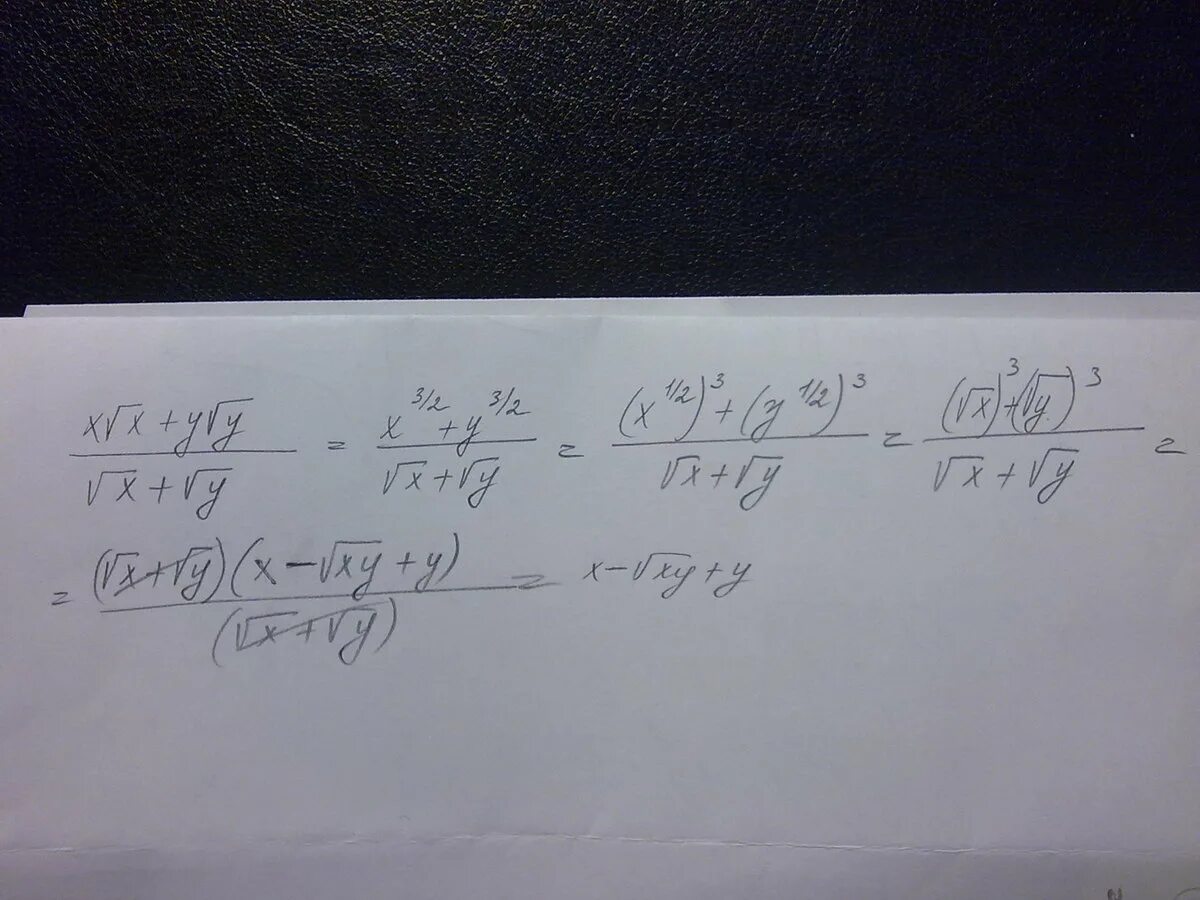 (x√x + y√y)/(√x + √y) = (x^{3/2} + y^{3/2})/(√x + √y) = ((x^{1/2})^3 + (y^{1/2})^3)/(√x + √y) = ((√x)^3 + (√y)^3)/(√x + √y) =
= ((√x + √y)(x − √xy + y))/((√x + √y)) = x − √xy + y